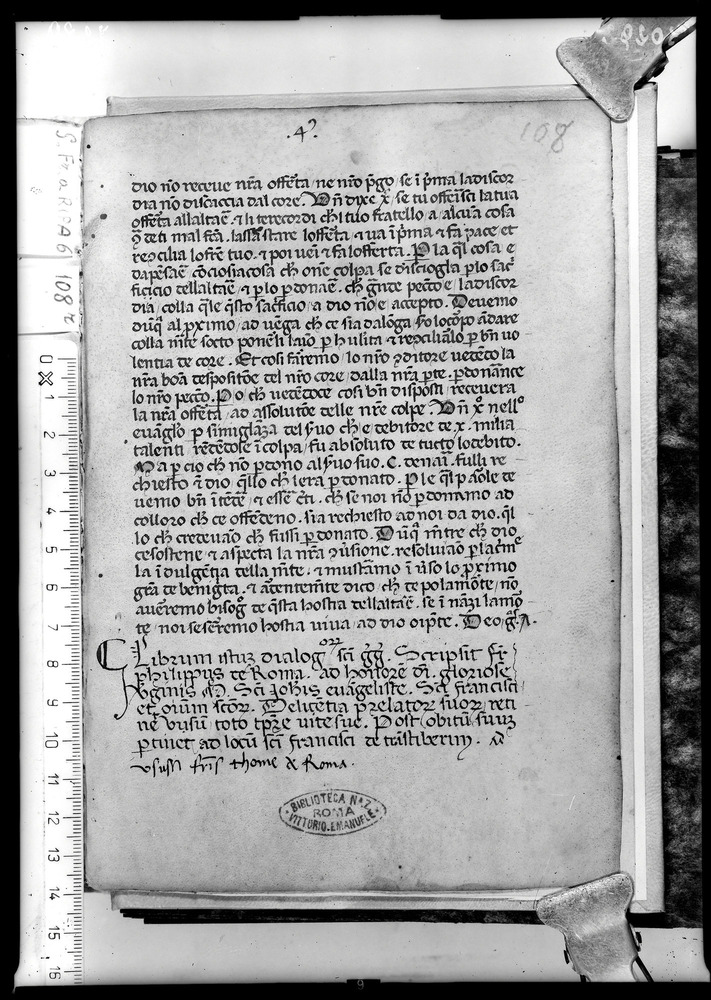 .4.
108
dio nō receue nr̄a offēta, ne nr̄o p̄go, se ī p̄ma ladiscor
dia nō discaccia dal core. Vn̄ dixe x̄, se tu offerisci la tua
offēta allaltaē, ⁊ li te recordi ch̄l tuo fratello a alcūa cosa
ꝯ de ti mal fc̄a. lassa stare loffēta ⁊ ua ī p̄ma ⁊ fa pace et
recōcilia lo fr̄e tuo. ⁊ poi uēi ⁊ fa lofferta. la q̄l cosa e
da pēsāe cōciosiacosa ch̄ on̄e colpa se disciogla ꝑ lo sac̄
ficicio dellaltāe, ⁊ ꝑ lo ꝑdonāe. ch̄ gn̄te pecc̄o e la discor
dia, colla q̄le q̄sto sac̄ficio, a dio nō e accepto. Deuemo
dūq̄ al ꝓximo, ad uēga ch̄ ce sia da lōga ꝑ locō, po ādare
colla mēte socto ponēli laīo ꝑ hūlita ⁊ recōciliālo ꝑ bn̄ uo
lentia de core. Et cosi farēmo, lo nr̄o ꝯditore uedēdo la
nr̄a bōa despositōe del nr̄o core, dalla nr̄a ꝑte. ꝑdonāce
lo nr̄o pecc̄o. Po ch̄ uedēdoce cosi bn̄ disposti receuera
la nr̄a offēta, ad assolutōe delle nr̄e colpe. Vn̄ x̄ nello
euāgl̄o ꝑ similglāza del s̄uo ch̄ e debitore de .x. milia
talenti rēdēdose ī colpa, fu absoluto de tucto lo debito.
Ma ꝑ cio ch̄ nō ꝑdono al s̄uo suo .C. denāi. fulli re
chiesto ī dio q̄llo ch̄ lera ꝑdonato. Ꝑ le q̄l paōle de
uemo bn̄ ītēdē, ⁊ essē c̄ti. ch̄ se noi nō ꝑdonamo ad
colloro ch̄ ce offēdeno. sia rechiesto ad noi da dio. q̄l
lo ch̄ credeuāo ch̄ fussi ꝑdonato. Dūq̄ mētre ch̄ dio
ce sostene, ⁊ aspecta la nr̄a ꝯūsione. resoluiāo ꝑ lacīme
la īdulgētia della mēte. ⁊ mustramo ī ūso lo ꝓximo
gr̄a de benigta. ⁊ cōtentemēte dico, ch̄ de po la mōte, nō
auēremo bisoḡ de q̄sta hostia dellaltāe. se ī nāzi la mo
te, noi se serēmo hostia uiua, ad dio oīpōte. Deo gr̄. A.
Librum istuȝ dialogorȝ sc̄i gḡ. Scripsit fr̄
philippus de Roma. ad honorē dī. gloriose
uginis M̄. Sc̄i Joh̄is euāgeliste. Sc̄i francisci
et oīum sc̄or. De licētia prelatoꝝ suoꝝ, reti
nē ususū toto tp̄re uite sue. Post obitū suuȝ
ꝑtinet ad locū sc̄i francisci de trāstiberim. Ad
usum fr̄is thome de Roma.
BIBLIOTECA NAZ.
ROMA
VITTORIO EMANUELE
S. Fra RIPA 6 108 r
0 1 2 3 4 5 6 7 8 9 10 11 12 13 14 15 16
9